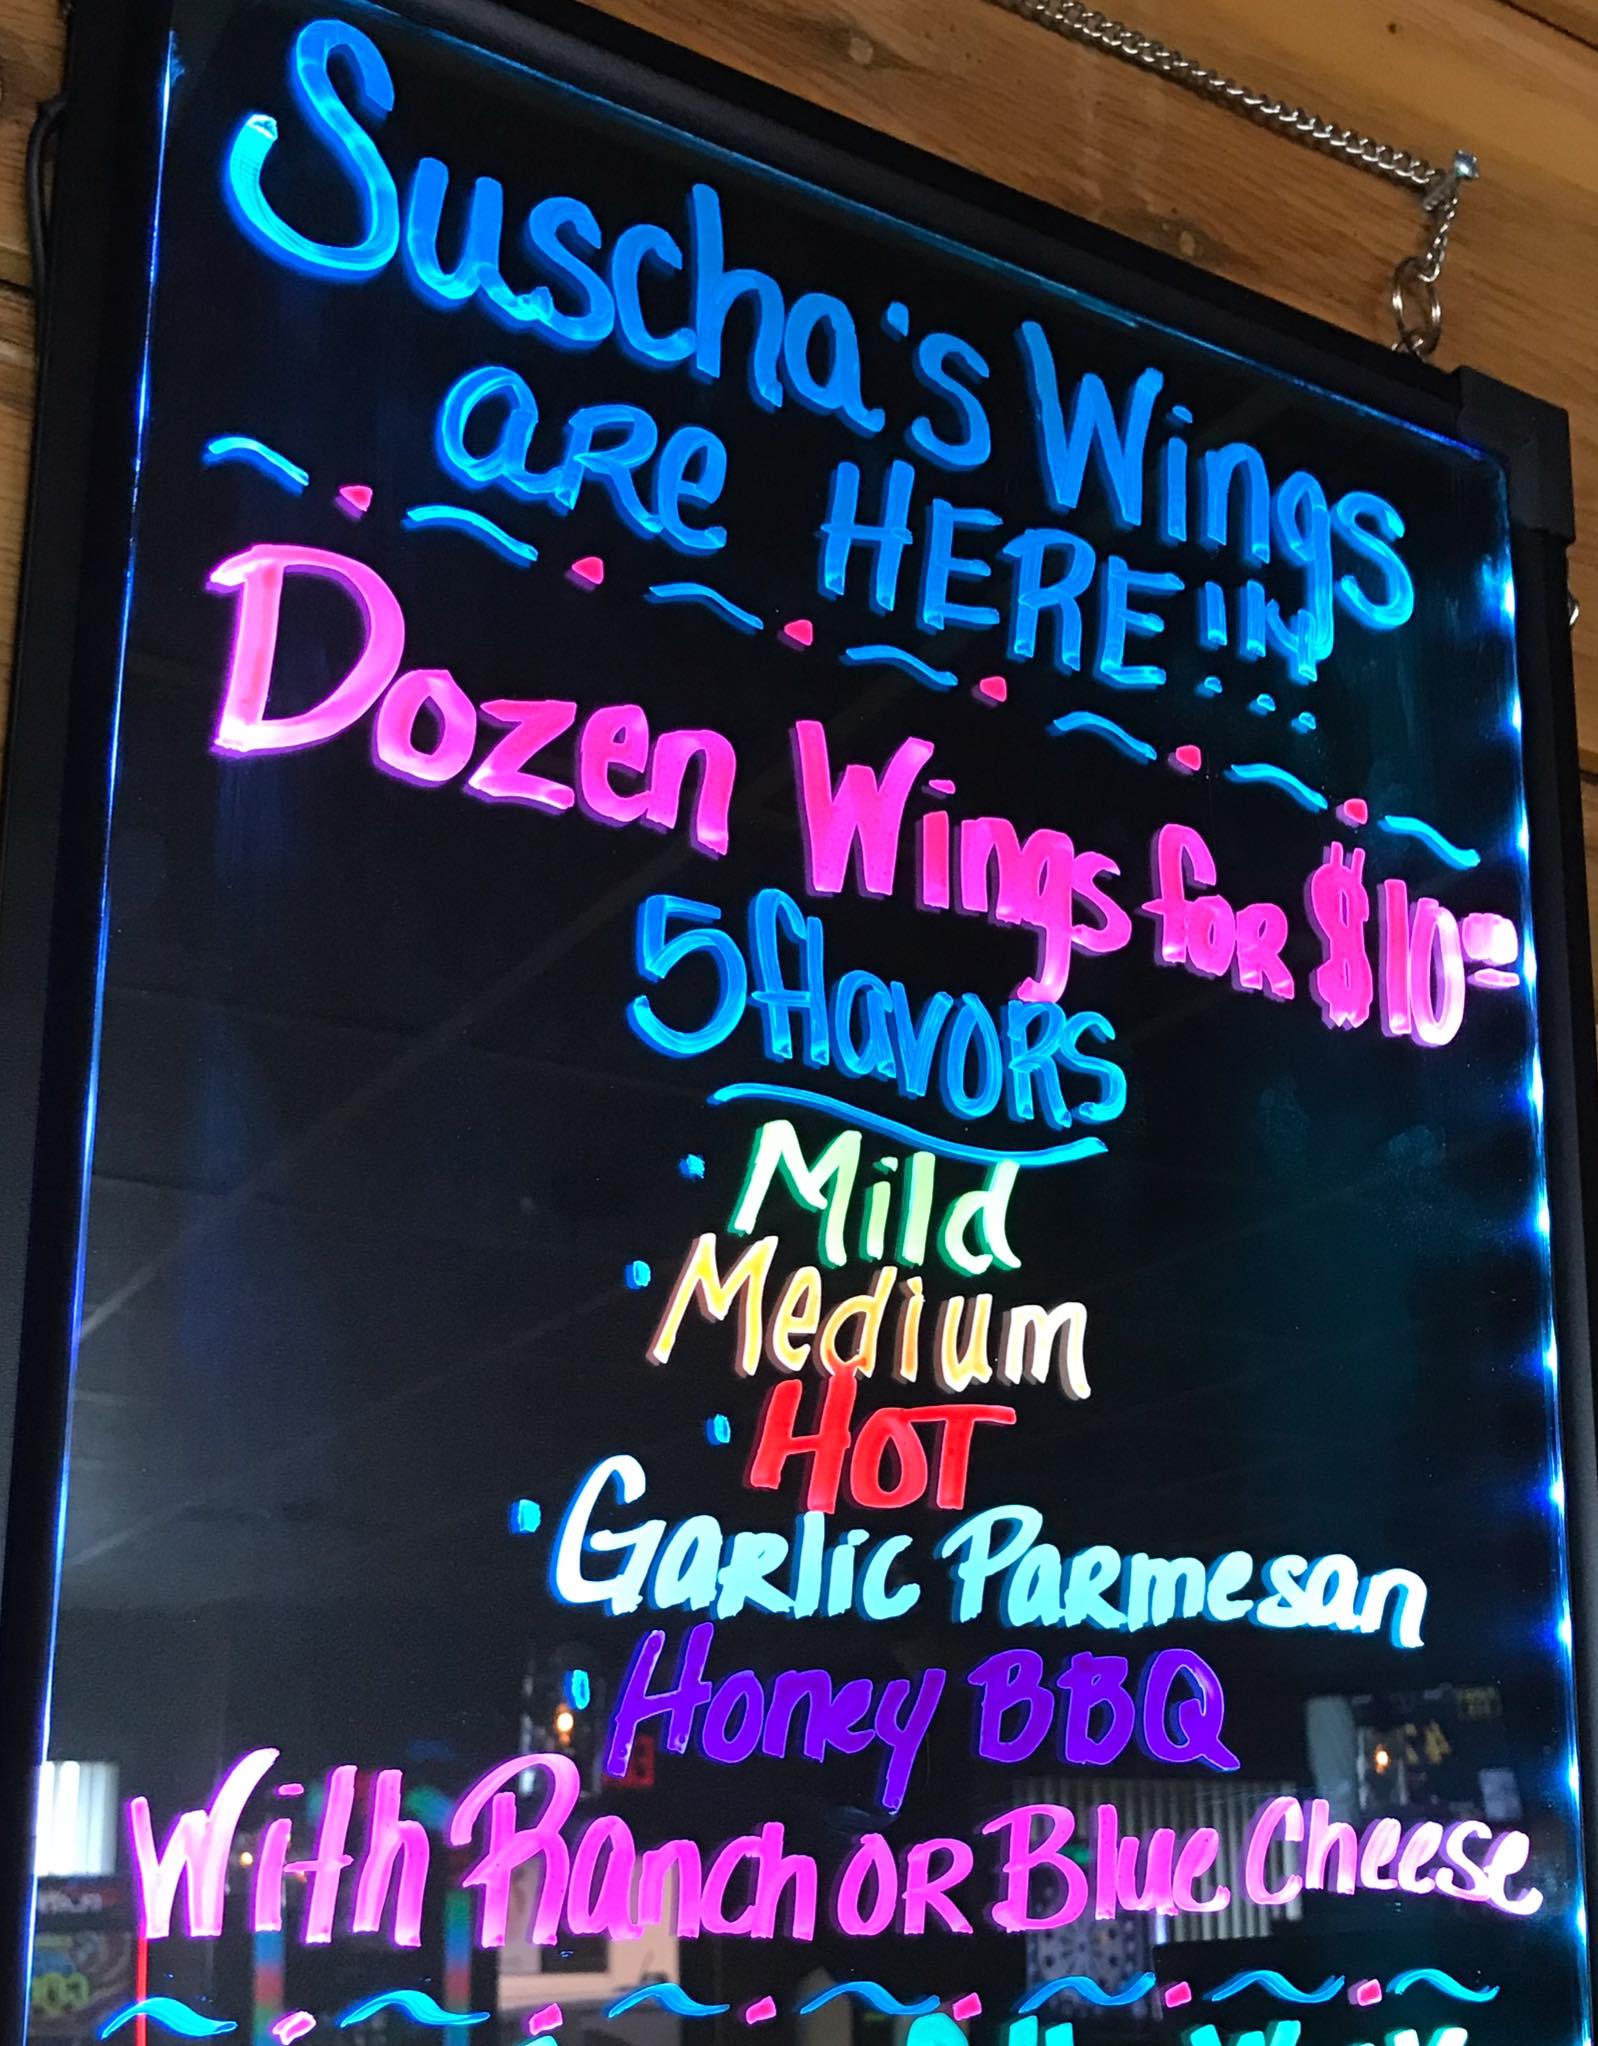 Suscha's Wings
are HERE!!!
Dozen Wings for $10⁰⁰
5 flavors
• Mild
• Medium
• HOT
• Garlic Parmesan
• Honey BBQ
With Ranch OR Blue Cheese